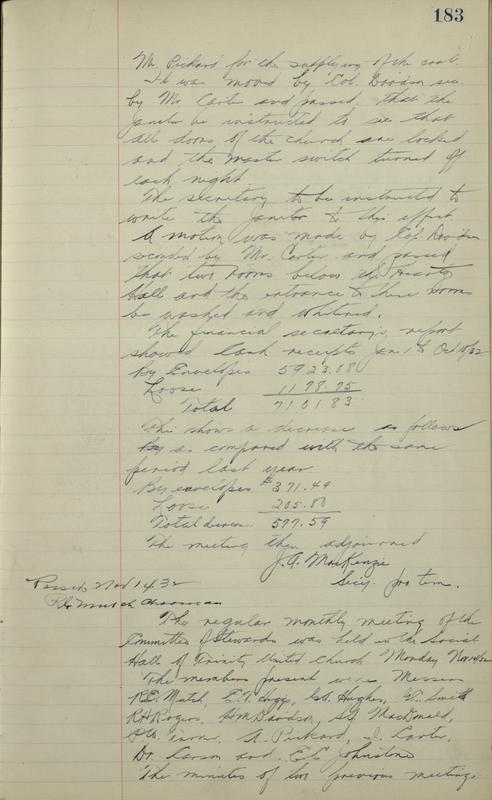 183
Mr. Pickard for the supplying of the coal.
It was moved by Col. Davidson sec.
by Mr. Carter and passed, that the
janitor be instructed to see that
all doors of the church are locked
and the master switch turned off
each night
The secretary to be instructed to
write the janitor to this effect
A motion was made by Col. Davidson
seconded by Mr. Carter and passed
that two rooms below the
Hall and the entrance to these rooms
be washed and whitened.
The financial secretary's report
showed cash receipts Jan 1 to Oct 10/32
By Envelopes 5923.08
Loose 1178.75
Total 7101 83
This shows a decrease as follows
By as compared with the same
period last year
By envelopes $371.49
Loose 205.80
Total decrease 577.59
The meeting then adjourned
J.A. MacKenzie
Secy. pro tem.
Passed Nov 14 32
Chairman
The regular monthly meeting of the
Committee of Stewards was held in the Social
Hall of Trinity United Church Monday Nov 14/32
The members present were Messrs
R.E. Mutch, E.T. Higgs, Hughes, Smith
R.H. Rogers, Davidson, MacDonald,
A. Pickard, J. Carter,
Dr. Larson and E.C. Johnstone
The minutes of two previous meetings